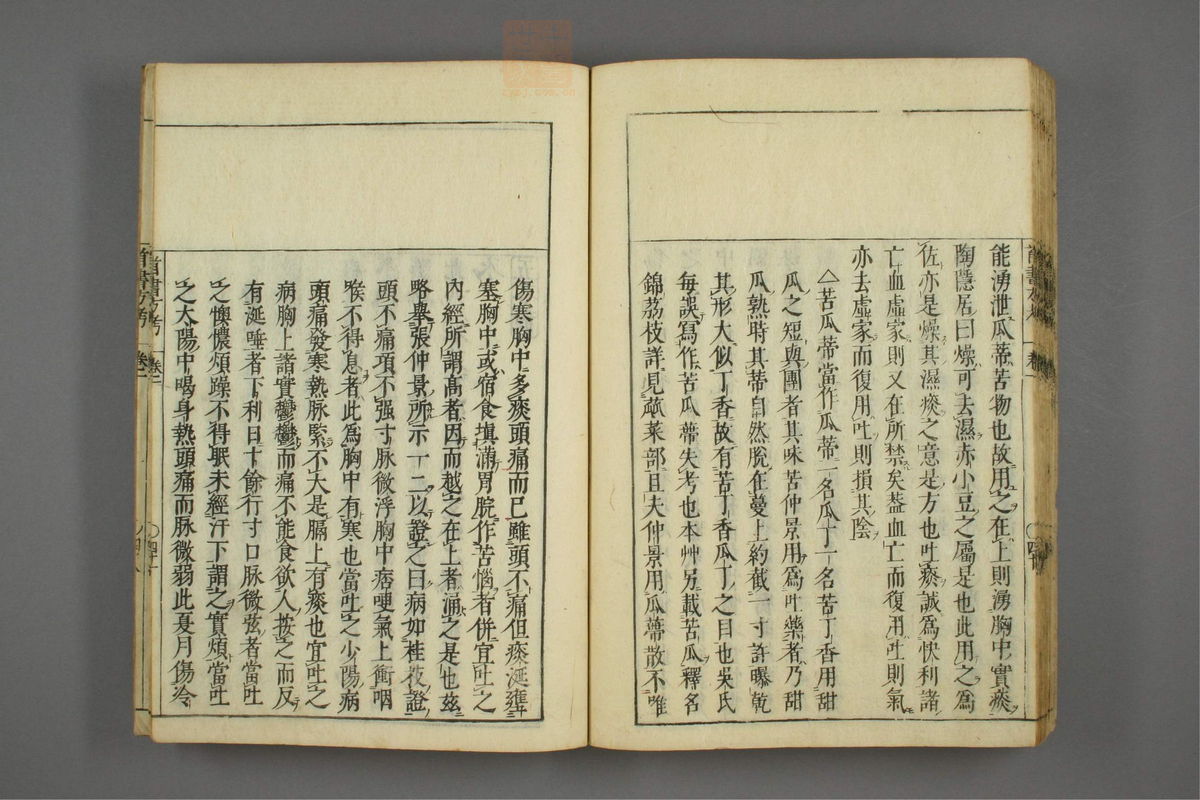 能湧泄瓜蒂苦物也故用之在上則湧胸中實痰
陶隱居曰燥可去濕赤小豆之屬是也此用之為
佐亦是燥其濕痰之意是方也吐痰誠為快利諸
亡血虛家則又在所禁矣蓋血亡而復用吐則氣
亦去虛家而復用吐則損其陰
△苦瓜蒂當作瓜蒂一名瓜丁一名苦丁香用甜
瓜之短與團者其味苦仲景用為吐藥者乃甜
瓜熟時其蒂自然脫在蔓上約截一寸許曝乾
其形大似丁香故有苦丁香瓜丁之目也吳氏
每誤寫作苦瓜蒂失考也本艸另載苦瓜釋名
錦荔枝詳見蓏菜部且夫仲景用瓜蒂散不唯
傷寒胸中多痰頭痛而已雖頭不痛但痰涎壅
塞胸中或宿食填滿胃脘作苦惱者併宜吐之
內經所謂高者因而越之在上者涌之是也茲
略舉張仲景所示一二以證之曰病如桂枝證
頭不痛項不强寸脉微浮胸中痞哽氣上衝咽
喉不得息者此為胸中有寒也當吐之少陽病
頭痛發寒熱脉緊不大是膈上有痰也宜吐之
病胸上諸實鬱鬱而痛不能食欲人按之而反
有涎唾者下利日十餘行寸口脉微弦者當吐
之懊憹煩躁不得眠未經汗下謂之實煩當吐
之太陽中暍身熱頭痛而脉微弱此夏月傷冷